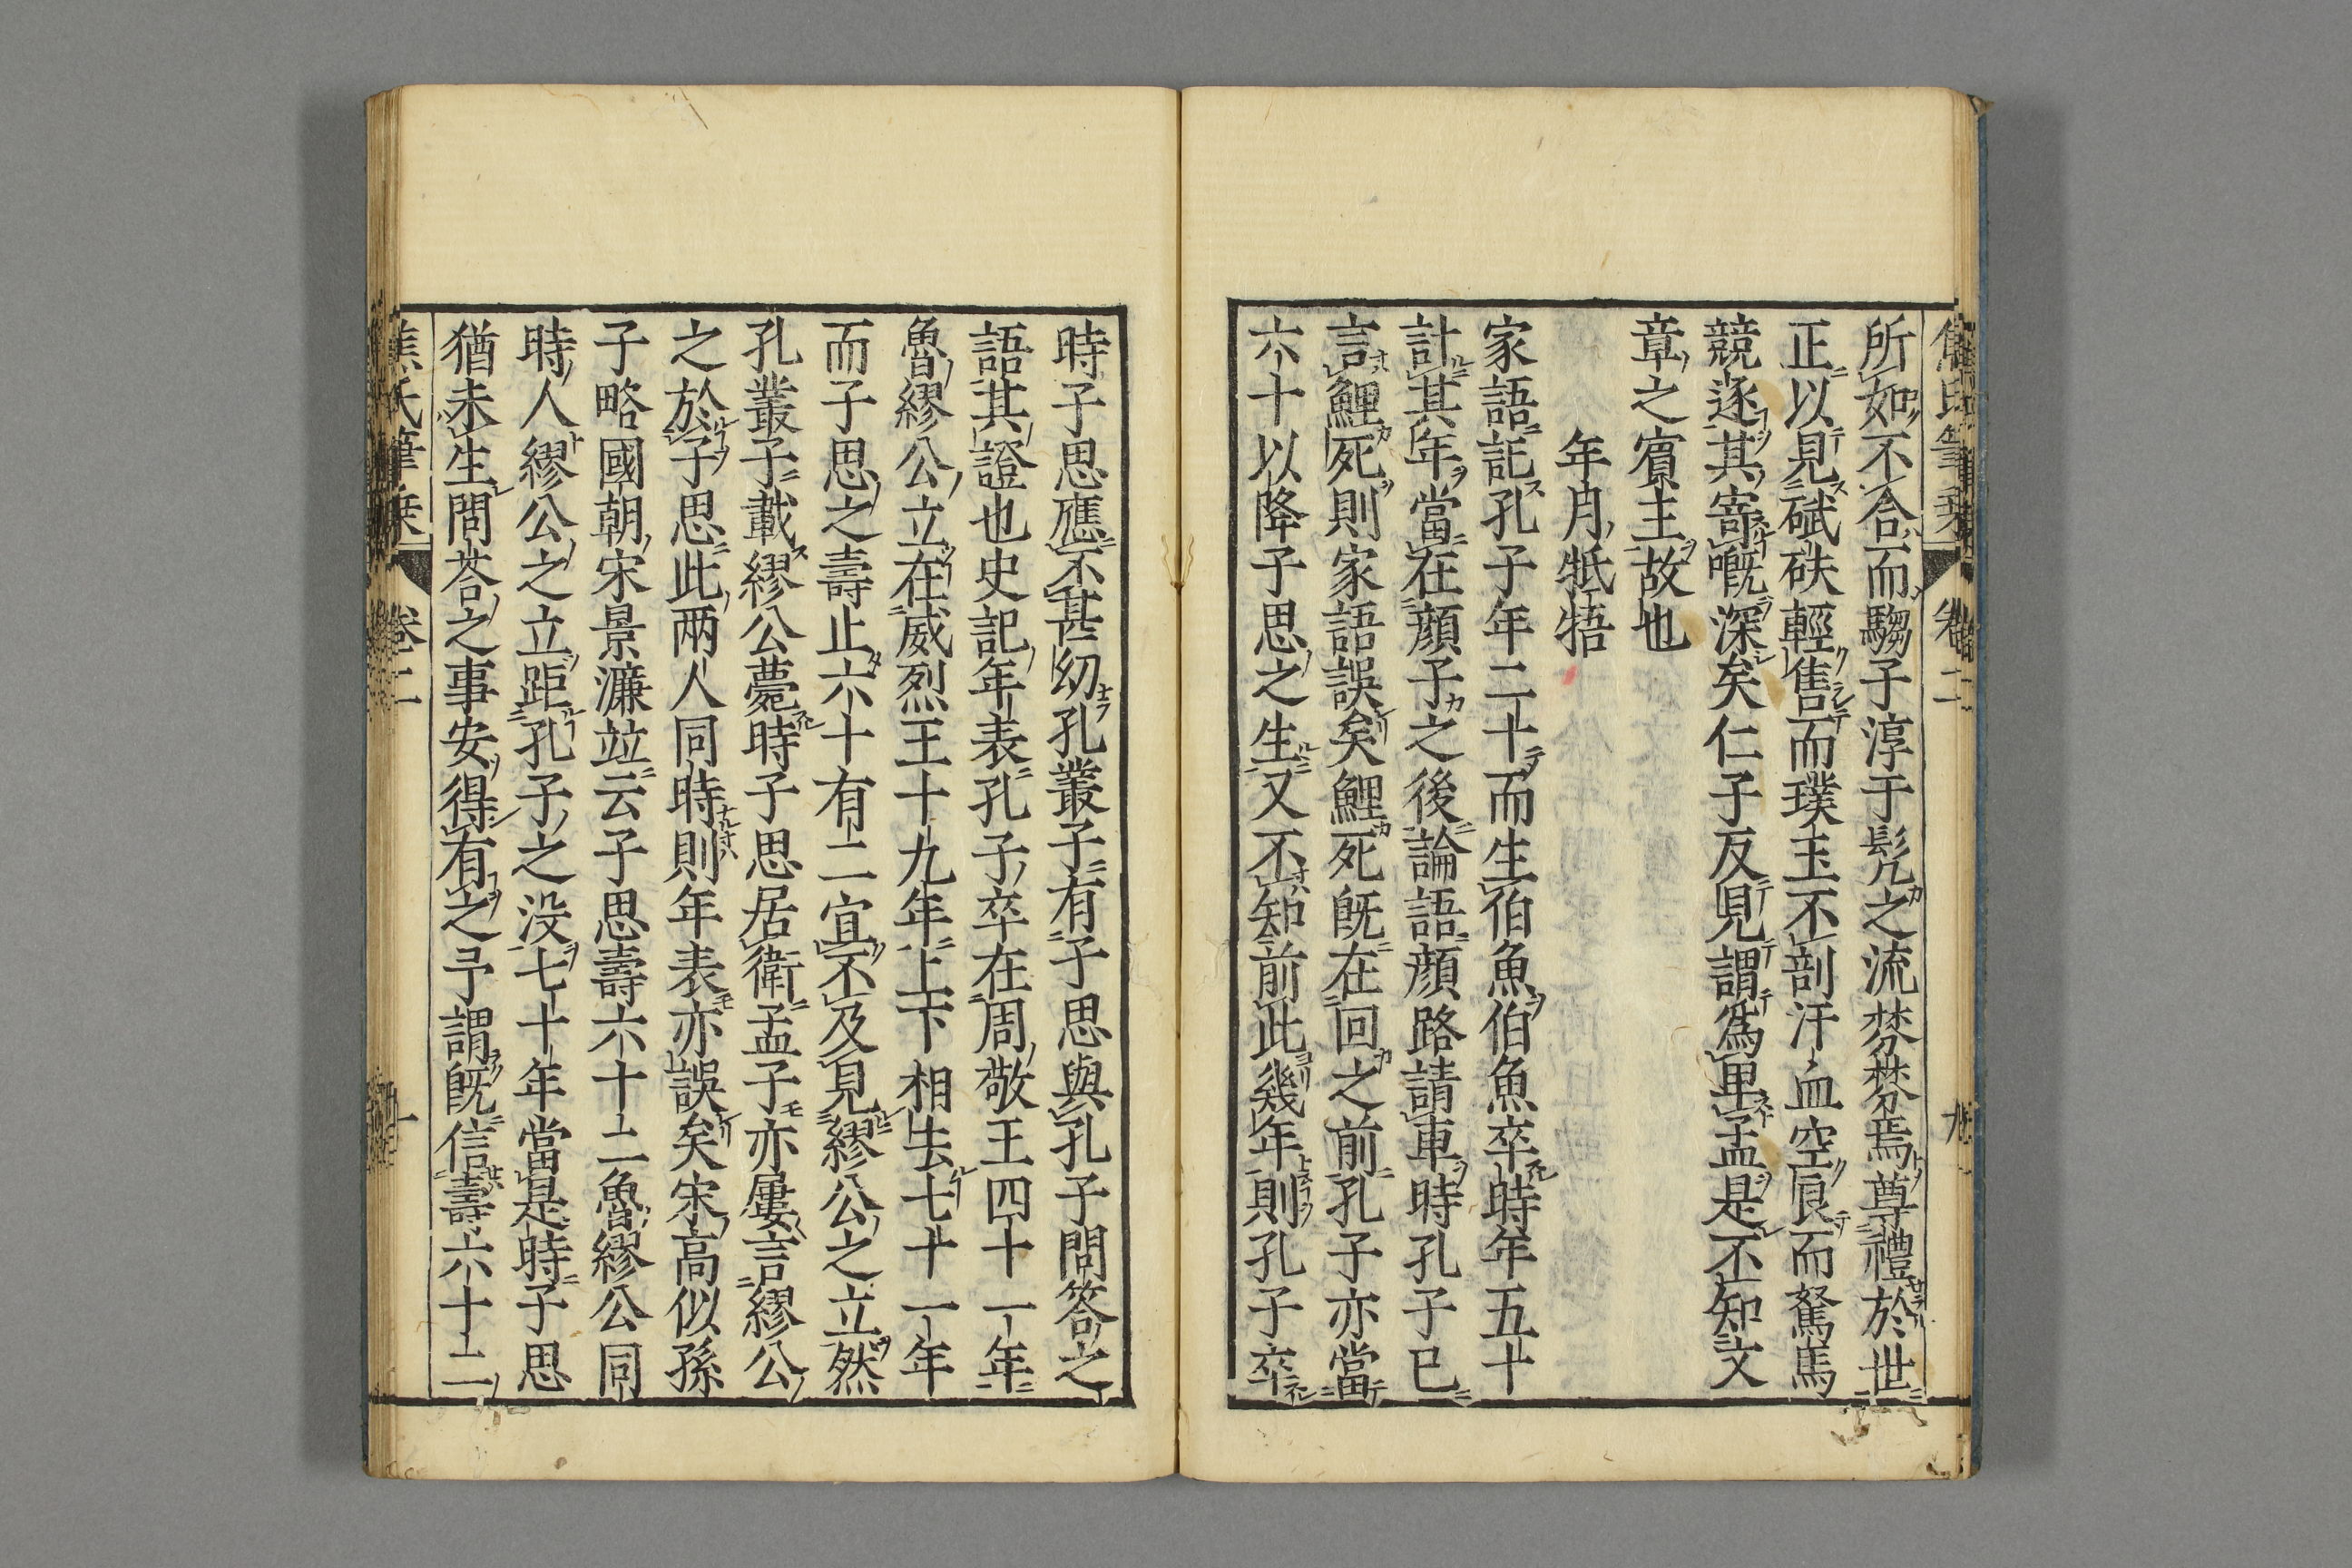 焦氏筆乗 卷二 九
所如不合而騶子淳于髠之流棼棼焉尊禮於世
正以見碔砆輕售而璞玉不剖汗血空良而駑馬
競逐其寄嘅深矣仁子反見謂爲里孟是不知文
章之賔主故也
年月牴牾
家語記孔子年二十而生伯魚伯魚卒時年五十
計其年當在顔子之後論語顔路請車時孔子已
言鯉死則家語誤矣鯉死旣在回之前孔子亦當
六十以降子思之生又不知前此幾年則孔子卒
時子思應不甚幼孔叢子有子思與孔子問答之
語其證也史記年表孔子卒在周敬王四十一年
魯繆公立在威烈王十九年上下相去七十一年
而子思之壽止六十有二宜不及見繆公之立然
孔叢子載繆公薨時子思居衛孟子亦屢言繆公
之於子思此兩人同時則年表亦誤矣宋高似孫
子略國朝宋景濂竝云子思壽六十二魯繆公同
時人繆公之立距孔子之没七十年當是時子思
猶未生問荅之事安得有之予謂旣信壽六十二
焦氏筆乗 卷二 十